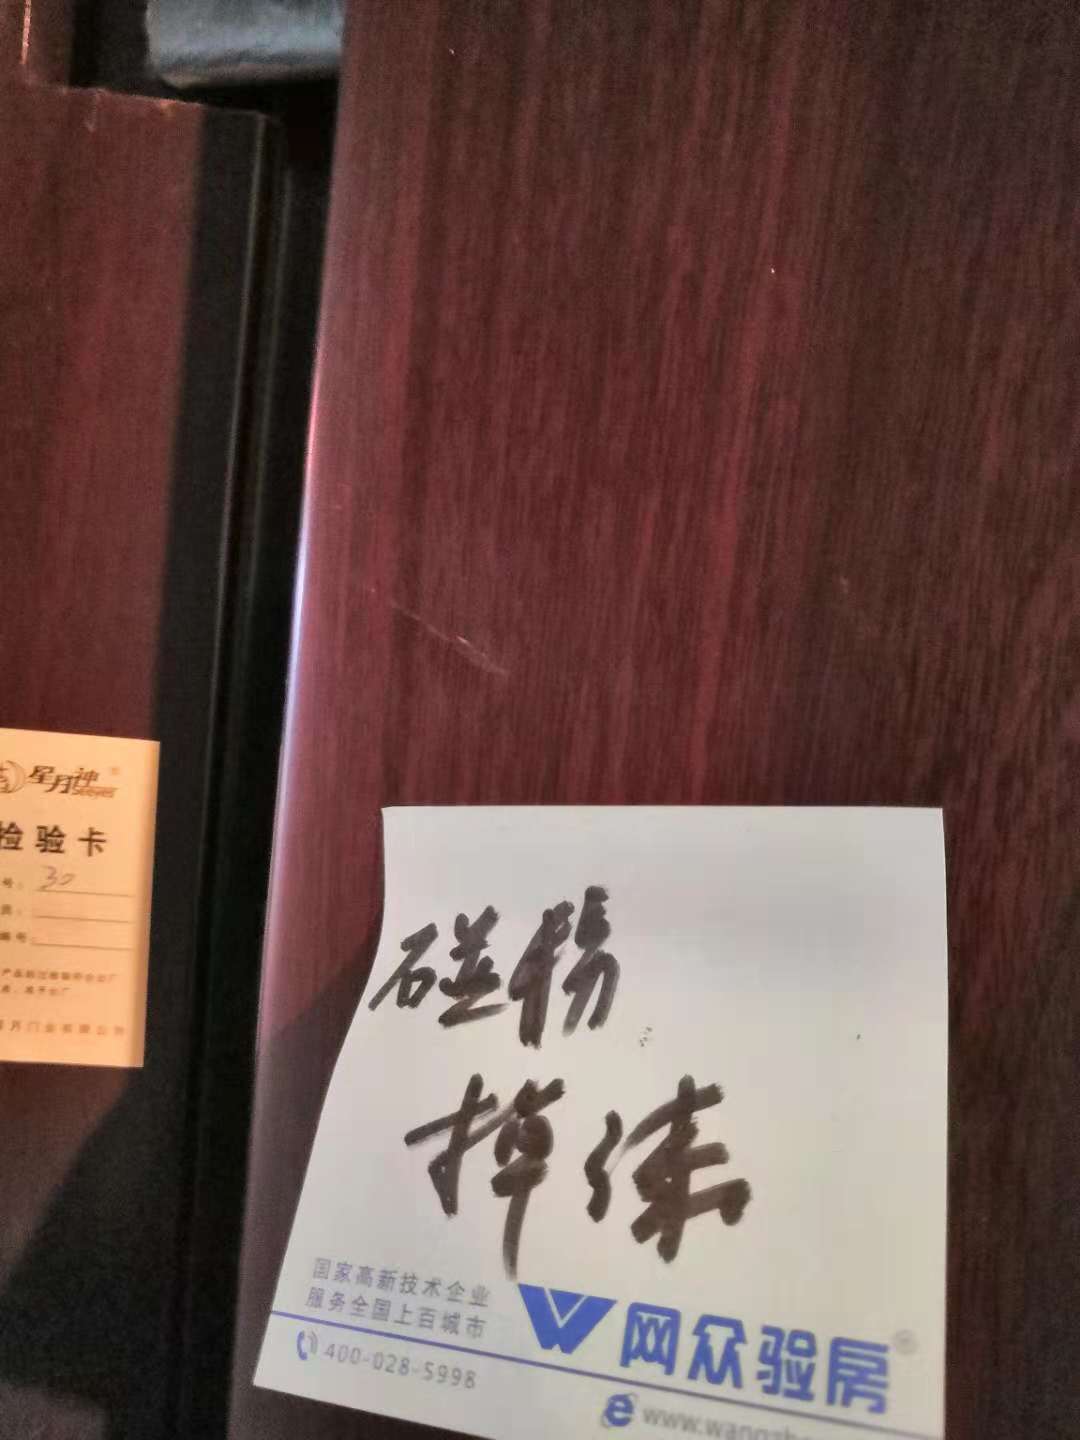 星月神
SEEYES
检验卡
号：30
编号：
碰伤
掉漆
国家高新技术企业
服务全国上百城市
网众验房
400-028-5998